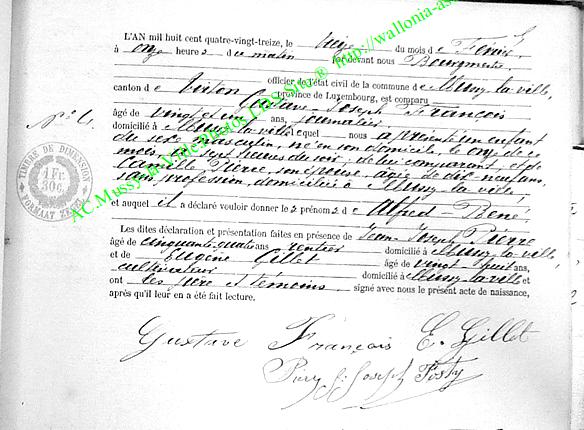 L'AN mil huit cent quatre-vingt-treize, le treize du mois de Février
à onze heures du matin par devant nous Bourgmestre
officier de l'état civil de la commune de Mussy-la-ville,
canton de Virton province de Luxembourg, est comparu
Gustave-Joseph François
âgé de vingt et un ans, journalier
domicilié à Mussy-la-ville lequel nous a présenté un enfant
du sexe masculin, né en son domicile, le onze de ce
mois, à sept heures du soir, de lui comparant et de
Camille Pierre, son épouse, âgée de dix-neuf ans,
sans profession, domiciliée à Mussy-la-ville
et auquel il a déclaré vouloir donner les prénoms de Alfred-René
Les dites déclaration et présentation faites en présence de Jean-Joseph Pierre
âgé de cinquante-quatre ans rentier domicilié à Mussy-la-ville
et de Eugène Gillet âgé de vingt ans,
cultivateur domicilié à Mussy-la-ville et
ont les père et témoins signé avec nous le présent acte de naissance,
après qu'il leur en a été fait lecture.
Gustave François E. Gillet
J. Joseph
N° 4
TIMBRE DE DIMENSION
1 Fr.
30c.
FORMAAT ZEGEL
AC Mussy-la-Ville Photos LDS Site @ http://wallonia-as